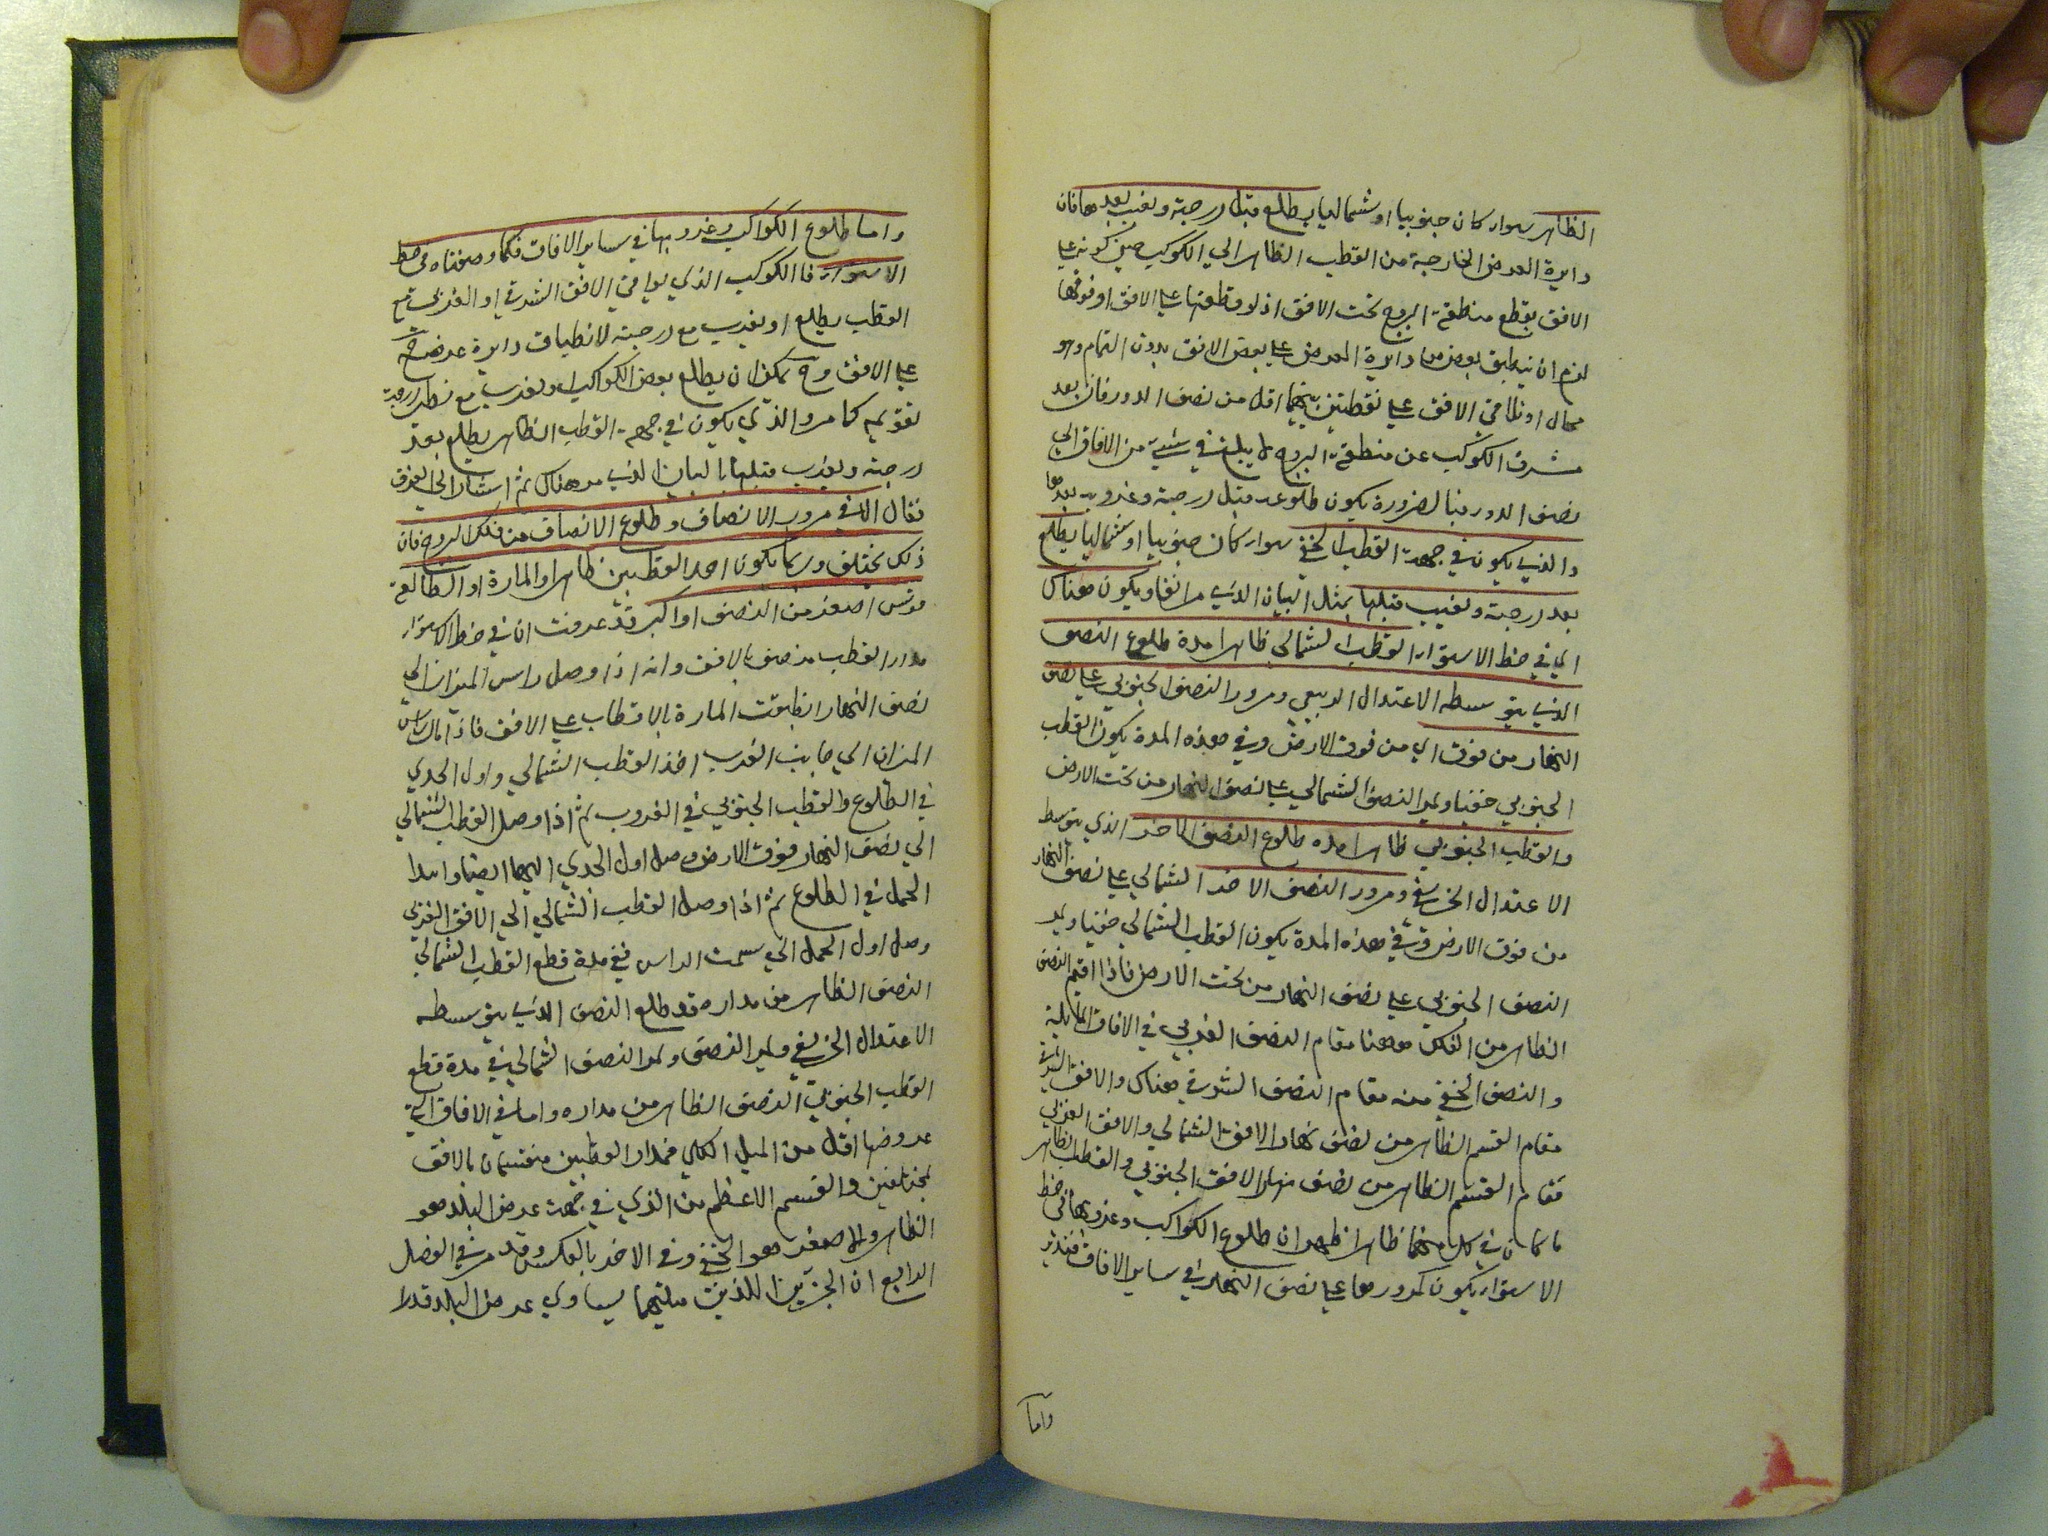 الظاهر سواء كان جنوبيا او شماليا يطلع قبل درجته ويغيب بعدها فان
دايرة العرض الخارجة من القطب الظاهر الي الكوكب حين كونه علي
الافق يقطع منطقة البروج تحت الافق اذ لو قطعتها علي الافق او فوقها
لزم ان ينطبق بعض من دايرة العرض علي بعض الافق بدون التمام وهو
محال او تلاقي الافق علي نقطتين بينهما اقل من نصف الدور فان بعد
مشرق الكوكب عن منطقة البروج لا يبلغ في شيء من الافاق الي
نصف الدور فبالضرورة يكون طلوعه قبل درجته وغروبه بعدها
والذي يكون في جهة القطب الخفي سواء كان جنوبيا او شماليا يطلع
بعد درجته ويغيب قبلها بمثل البيان الذي مر انفا ويكون هناك
اي في خط الاستواء القطب الشمالي ظاهرا مدة طلوع النصف
الذي يتوسطه الاعتدال الربيعي ومرور النصف الجنوبي علي نصف
النهار من فوق اي من فوق الارض وفي هذه المدة يكون القطب
الجنوبي خفيا ويمر النصف الشمالي علي نصف النهار من تحت الارض
والقطب الجنوبي ظاهرا مدة طلوع النصف الاخر الذي يتوسط
الاعتدال الخريفي ومرور النصف الاخر الشمالي علي نصف النهار
من فوق الارض وفي هذه المدة يكون القطب الشمالي خفيا ويمر
النصف الجنوبي علي نصف النهار من تحت الارض فاذا اقيم النصف
الظاهر من الفلك ههنا مقام النصف الغربي في الافاق المايلة
والنصف الخفي منه مقام النصف الشرقي هناك والافق الشرقي
مقام القسم الظاهر من نصف نهار الافق الشمالي والافق الغربي
مقام القسم الظاهر من نصف نهار الافق الجنوبي والقطب الظاهر
ما كان في كل منهما ظاهرا ظهر ان طلوع الكواكب وغروبها في خط
الاستواء يكون كمرورها علي نصف النهار في ساير الافاق فتدبر
واما
واما طلوع الكواكب وغروبها في ساير الافاق فكما وصفناه في خط
الاستواء فالكوكب الذي يوافي الافق الشرقي او الغربي مع
القطب يطلع او يغرب مع درجته لانطباق دايرة عرضه ح
علي الافق وح يمكن ان يطلع بعض الكواكب او يغرب مع نظير درجة
تقويمه كما مر والذي يكون في جهة القطب الظاهر يطلع بعد
درجته ويغرب قبلها بالبيان الذي مر هناك ثم اشار الي الفرق
فقال الا في مرور الانصاف وطلوع الانصاف من فلك البروج فان
ذلك يختلف وربما يكون احد القطبين ظاهرا والمارة او الطالعة
قوس اصغر من النصف او اكبر قد عرفت ان في خط الاستواء
مدار القطب منصف بالافق وانه اذا وصل راس الميزان الي
نصف النهار انطبقت المارة بالاقطاب علي الافق فاذا مال راس
الميزان الي جانب الغرب اخذ القطب الشمالي واول الجدي
في الطلوع والقطب الجنوبي في الغروب ثم اذا وصل القطب الشمالي
الي نصف النهار فوق الارض وصل اول الجدي اليها ايضا وابتدا
الحمل في الطلوع ثم اذا وصل القطب الشمالي الي الافق الغربي
وصل اول الحمل الي سمت الراس ففي مدة قطع القطب الشمالي
النصف الظاهر من مداره قد طلع النصف الذي يتوسطه
الاعتدال الخريفي ويمر النصف ويمر النصف الشمالي في مدة قطع
القطب الجنوبي النصف الظاهر من مداره واما في الافاق التي
عروضها اقل من الميل الكلي فمدار القطبين منقسمان بالافق
بمختلفين والقسم الاعظم من الذي في جهة عرض البلد هو
الظاهر والاصغر هو الخفي وفي الاخر بالعكس وقد مر في الفصل
الرابع ان الجزئين اللذين ميلهما يساوي عرض البلد قدرا